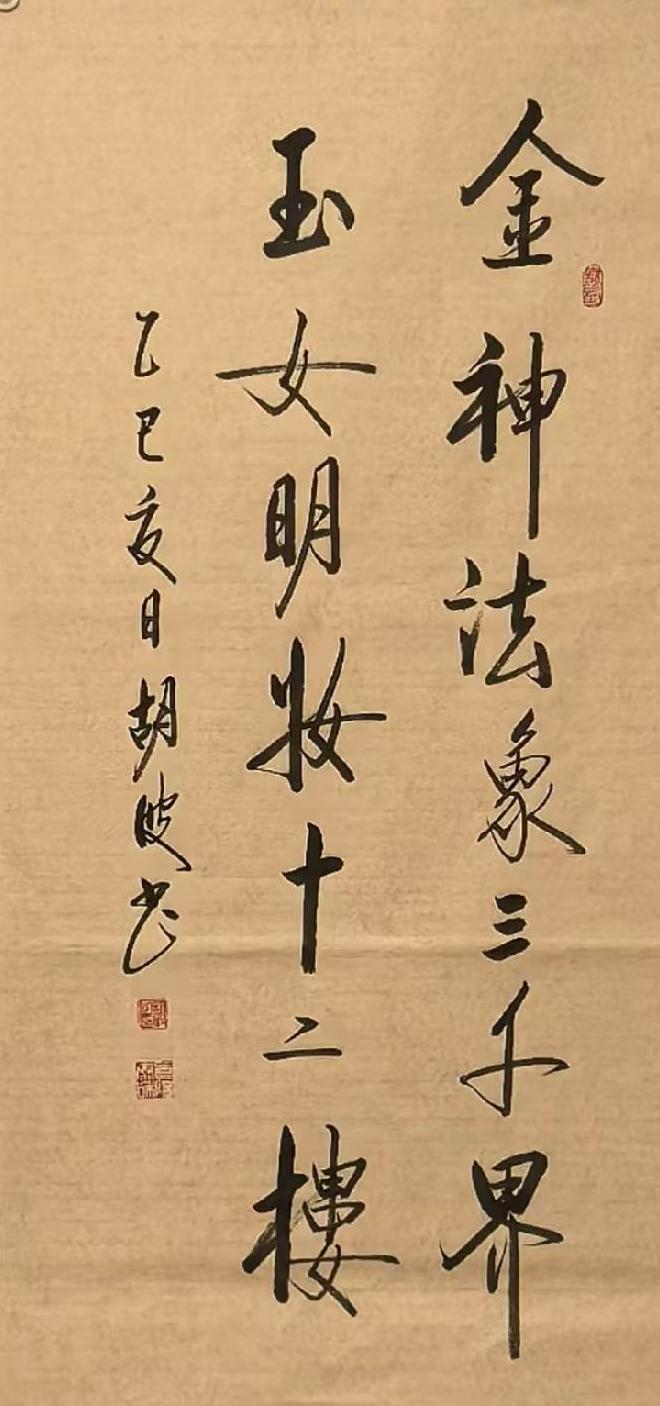 金神法象三千界
玉女明妝十二樓
乙巳夏日胡波書